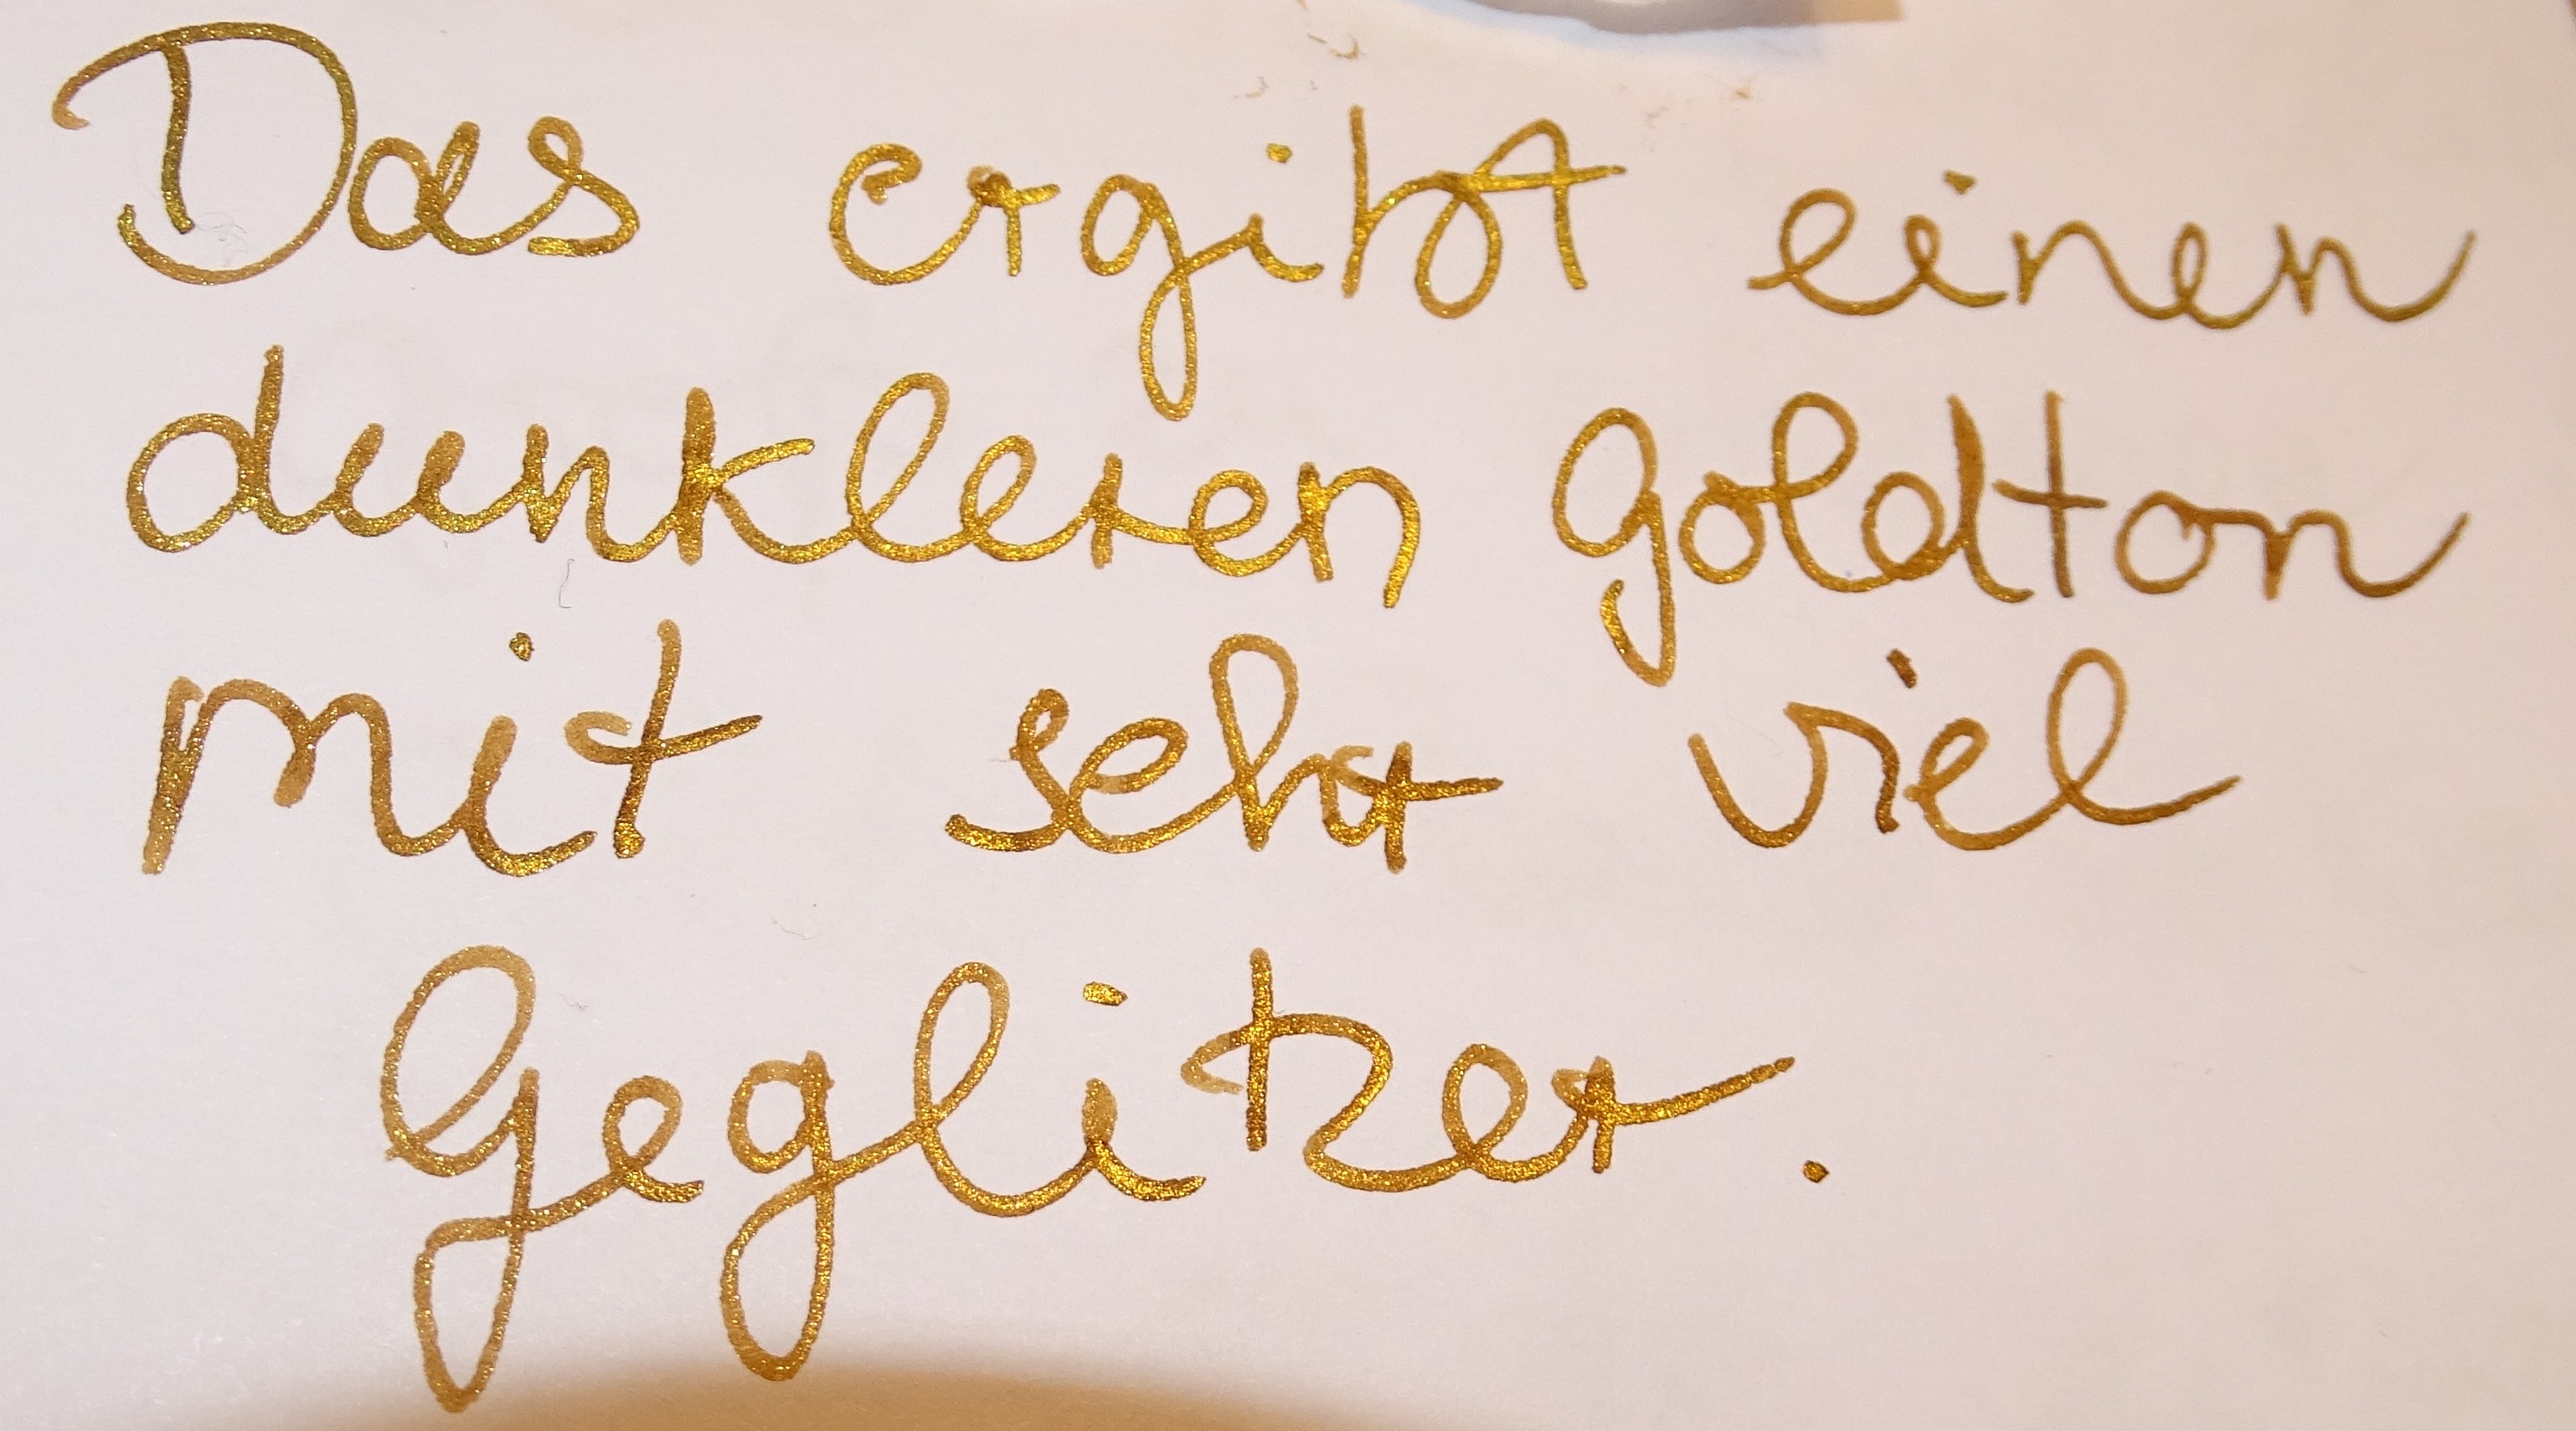 Das ergibt einen
dunkleren Goldton
mit sehr viel
Geglitzer.